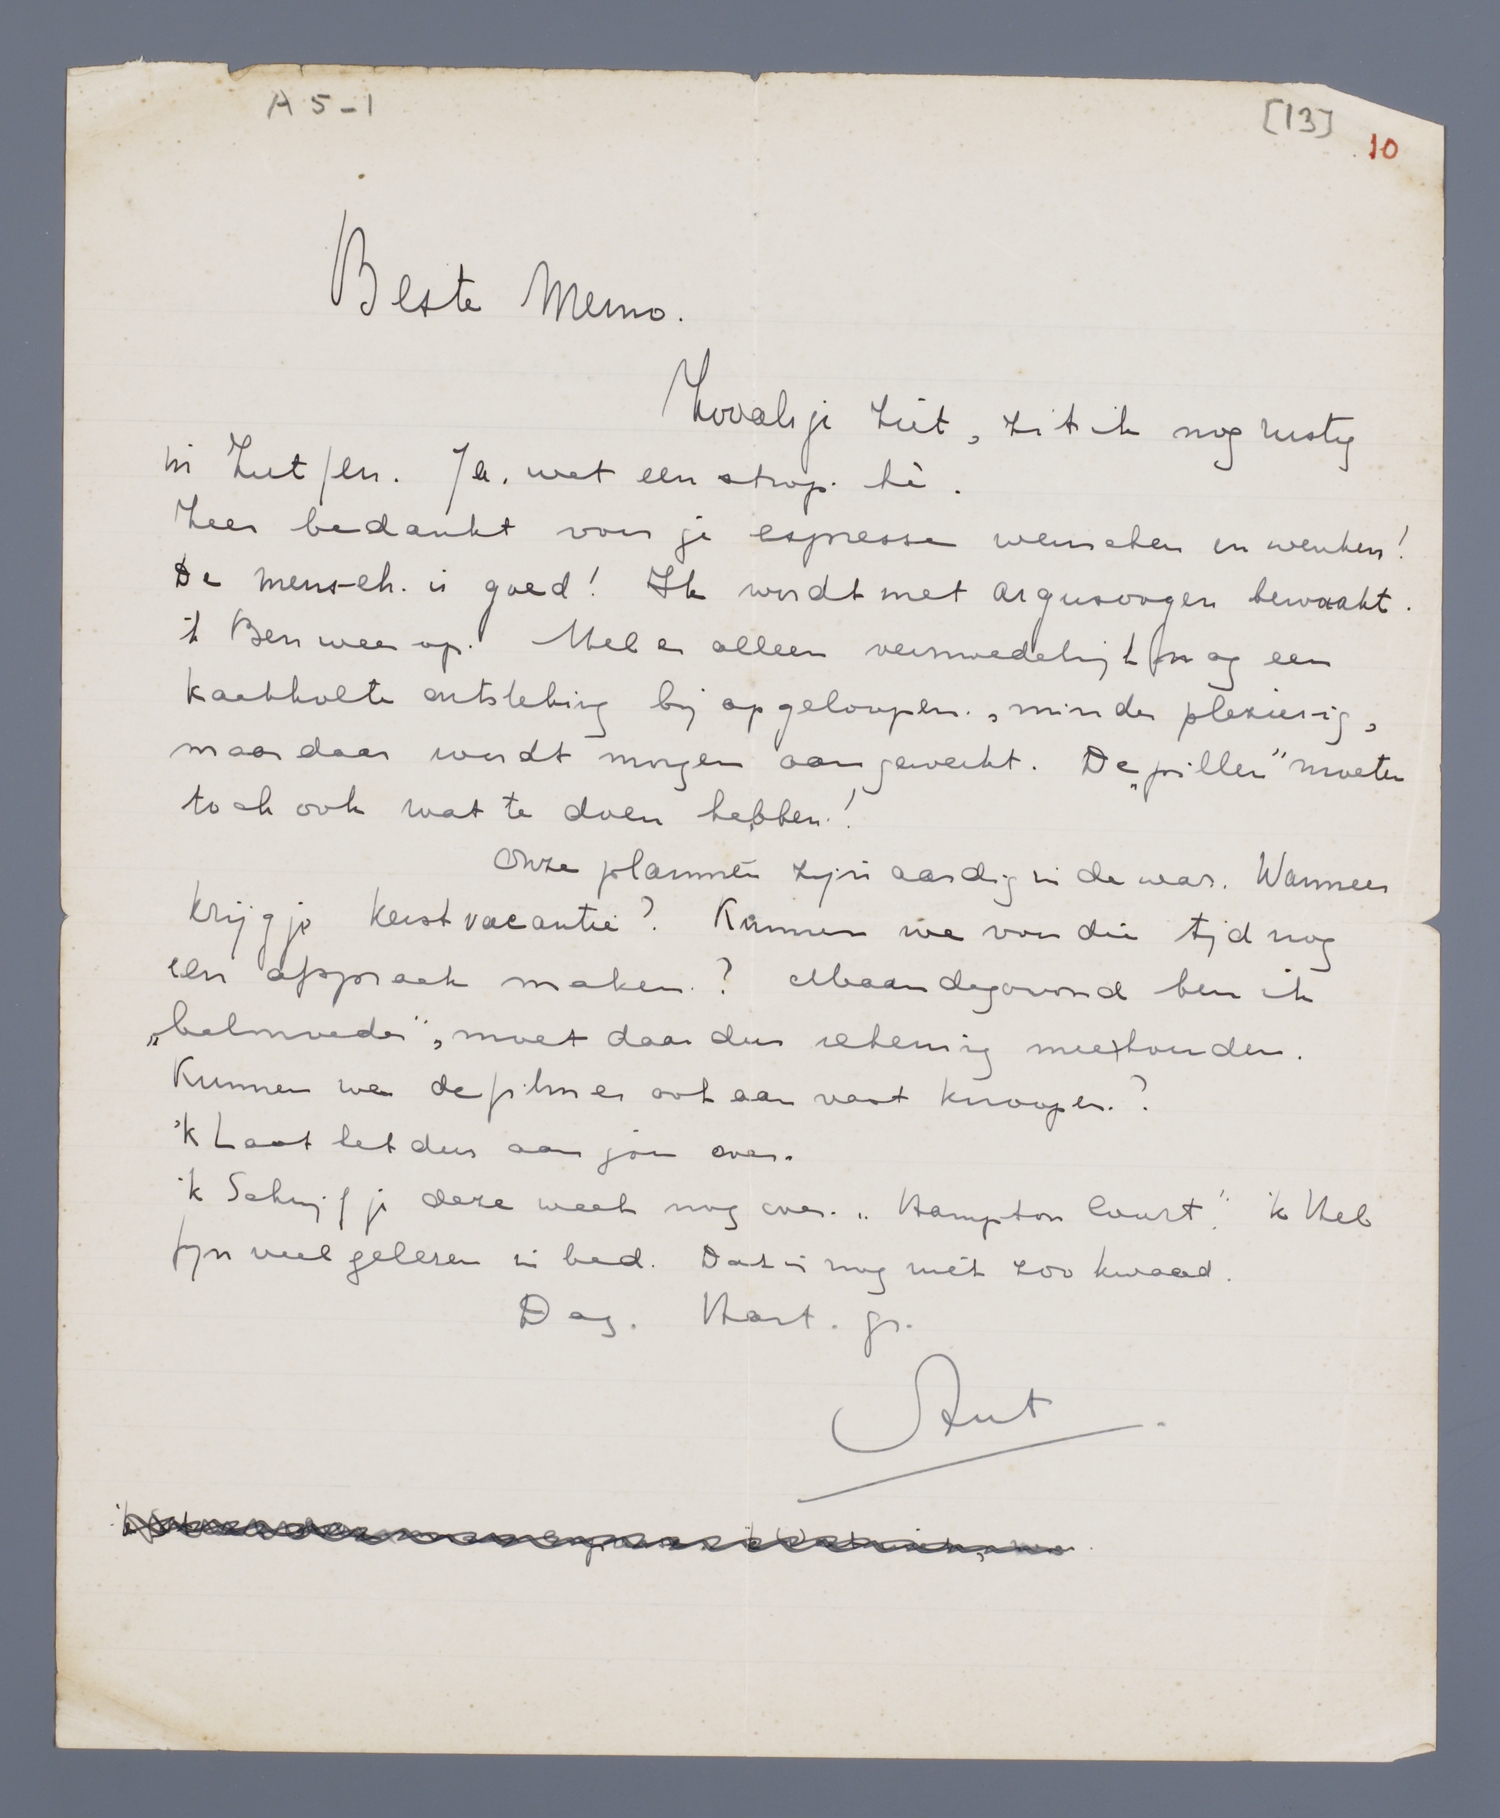 A 5-1
[13]
10
Beste Menno.
Zooals je ziet, zit ik nog rustig
in Zutfen. Ja, wat een strop. hè.
Zeer bedankt voor je espresse wenschen en wenken!
De mensch. is goed! Ik wordt met argusoogen bewaakt.
ik Ben weer op. Heb er alleen vermoedelijk nog een
kaakholte ontsteking bij opgeloopen., minder plezierig,
maar daar wordt morgen aan gewerkt. De „pillen” moeten
toch ook wat te doen hebben!
Onze plannen zijn aardig in de war. Wanneer
krijg je kerstvacantie? Kunnen we voor die tijd nog
een afspraak maken.? Maandagavond ben ik
„balmoeder”, moet daar dus rekening mee houden.
Kunnen we de film er ook aan vast knoopen.?
'k Laat het dus aan jou over.
'k Schrijf je deze week nog over. „Hampton Court”. 'k Heb
fijn veel gelezen in bed. Dat is nog niet zoo kwaad.
Dag. Hart. gr.
Ant